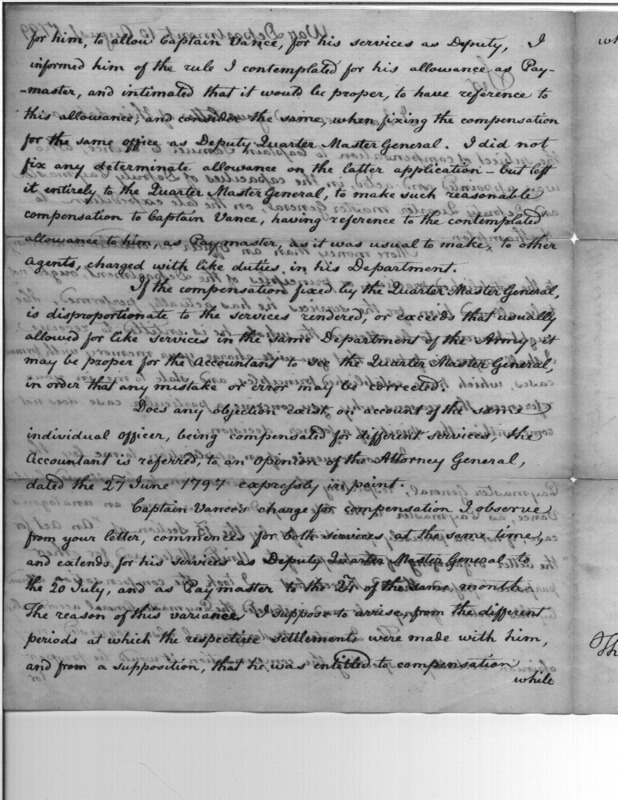 for him, to allow Captain Vance, for his services as Deputy, I
informed him of the rule I contemplated for his allowance as Pay-
-master, and intimated that it would be proper, to have reference to
this allowance, and consider the same, when fixing the compensation
for the same office as Deputy Quarter Master General. I did not
fix any determinate allowance on the latter application - but left
it entirely to the Quarter Master General, to make such reasonable
compensation to Captain Vance, having reference to the contemplated
allowance to him, as Paymaster, as it was usual to make, to other
agents, charged with like duties, in his Department.
If the compensation fixed by the Quarter Master General,
is disproportionate to the services rendered, or exceeds that usually
allowed for like services in the same Department of the Army, it
may be proper for the Accountant to see the Quarter Master General,
in order that any mistake or error may be corrected.
Does any objection exist, on account of the same
individual officer, being compensated for different services, the
Accountant is referred, to an opinion of the Attorney General,
dated the 27 June 1797 expressly in point.
Captain Vance's charge for compensation I observe
from your letter, commences for both services at the same time,
and extends for his services as Deputy Quarter Master General to
the 20 July, and as Paymaster to the 27 of the same month.
The reason of this variance I suppose to arrise, from the different
periods at which the respective settlements were made with him,
and from a supposition, that he was entitled to compensation
while
wh
Th